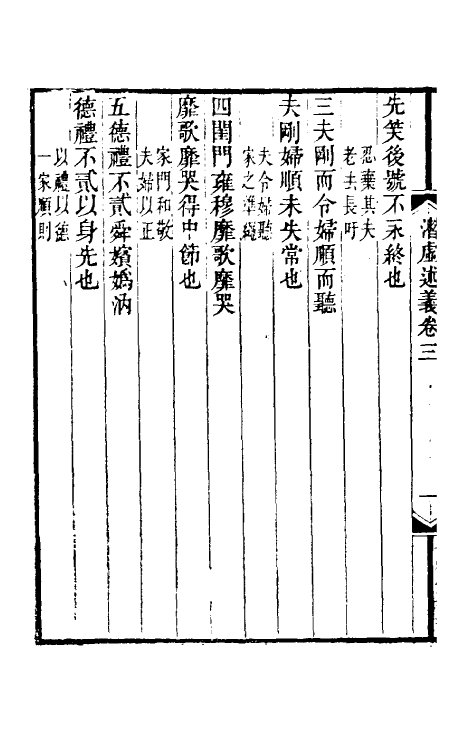 潛虛述義卷三
一
先笑後號不永終也
忍棄其夫
老去長吁
三夫剛而令婦順而聽
夫剛婦順未失常也
夫令婦聽
家之準繩
四閨門雍穆靡歌靡哭
靡歌靡哭得中節也
家門和敬
夫婦以正
五德禮不貳舜嬪嬀汭
德禮不貳以身先也
以禮以德
一家順則